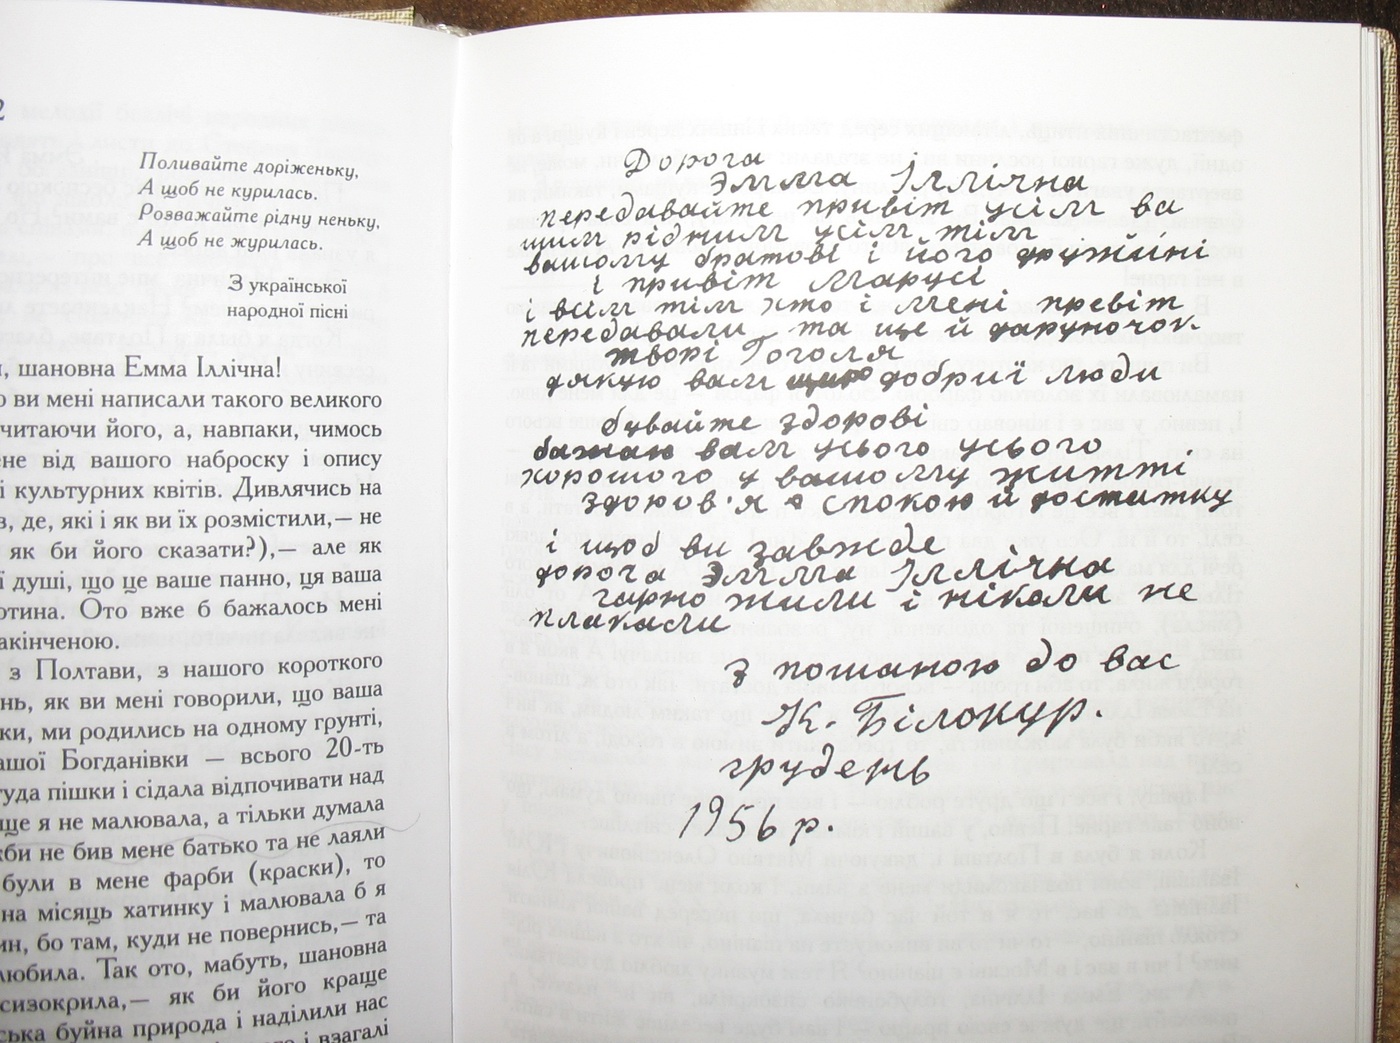 2
Поливайте доріженьку,
А щоб не курилась.
Розважайте рідну неньку,
А щоб не журилась.
З української
народної пісні
, шановна Емма Іллічна!
о ви мені написали такого великого
читаючи його, а, навпаки, чимось
ене від вашого наброску і опису
і культурних квітів. Дивлячись на
в, де, які і як ви їх розмістили,— не
як би його сказати?),— але як
ї душі, що це ваше панно, ця ваша
ртина. Ото вже б бажалось мені
акінченою.
з Полтави, з нашого короткого
нь, як ви мені говорили, що ваша
ки, ми родились на одному грунті,
ашої Богданівки — всього 20-ть
туда пішки і сідала відпочивати над
ще я не малювала, а тільки думала
кби не бив мене батько та не лаяли
були в мене фарби (краски), то
на місяць хатинку і малювала б я
ин, бо там, куди не повернись,— та
любила. Так ото, мабуть, шановна
сизокрила,— як би його краще
ська буйна природа і наділили нас
і взагалі
Дорога
Эмма Іллічна
передавайте привіт усім ва
шим рідним усім тім
вашому братові і його дружині
і привіт Марусі
і всім тім хто і мені превіт
передавали та ще й даруночок
творі Гоголя
дякую вам щиро добриї люди
бувайте здорові
бажаю вам усього усього
хорошого у вашому житті
здоров'я спокою й достатку
і щоб ви завжде
дорога Эмма Іллічна
гарно жили і ніколи не
плакали
З пошаною до вас
К. Білокур.
грудень
1956 р.